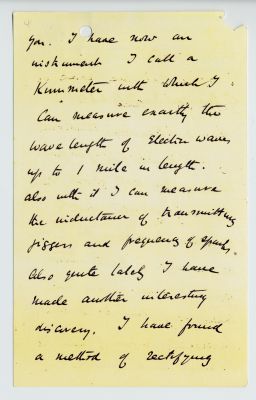 you. I have now an
instrument I call a
Kummeter with which I
can measure exactly the
wave length of Electric waves
up to 1 mile in length.
also with it I can measure
the inductance of transmitting
jiggers and frequency of sparks.
Also quite lately I have
made another interesting
discovery. I have found
a method of rectifying